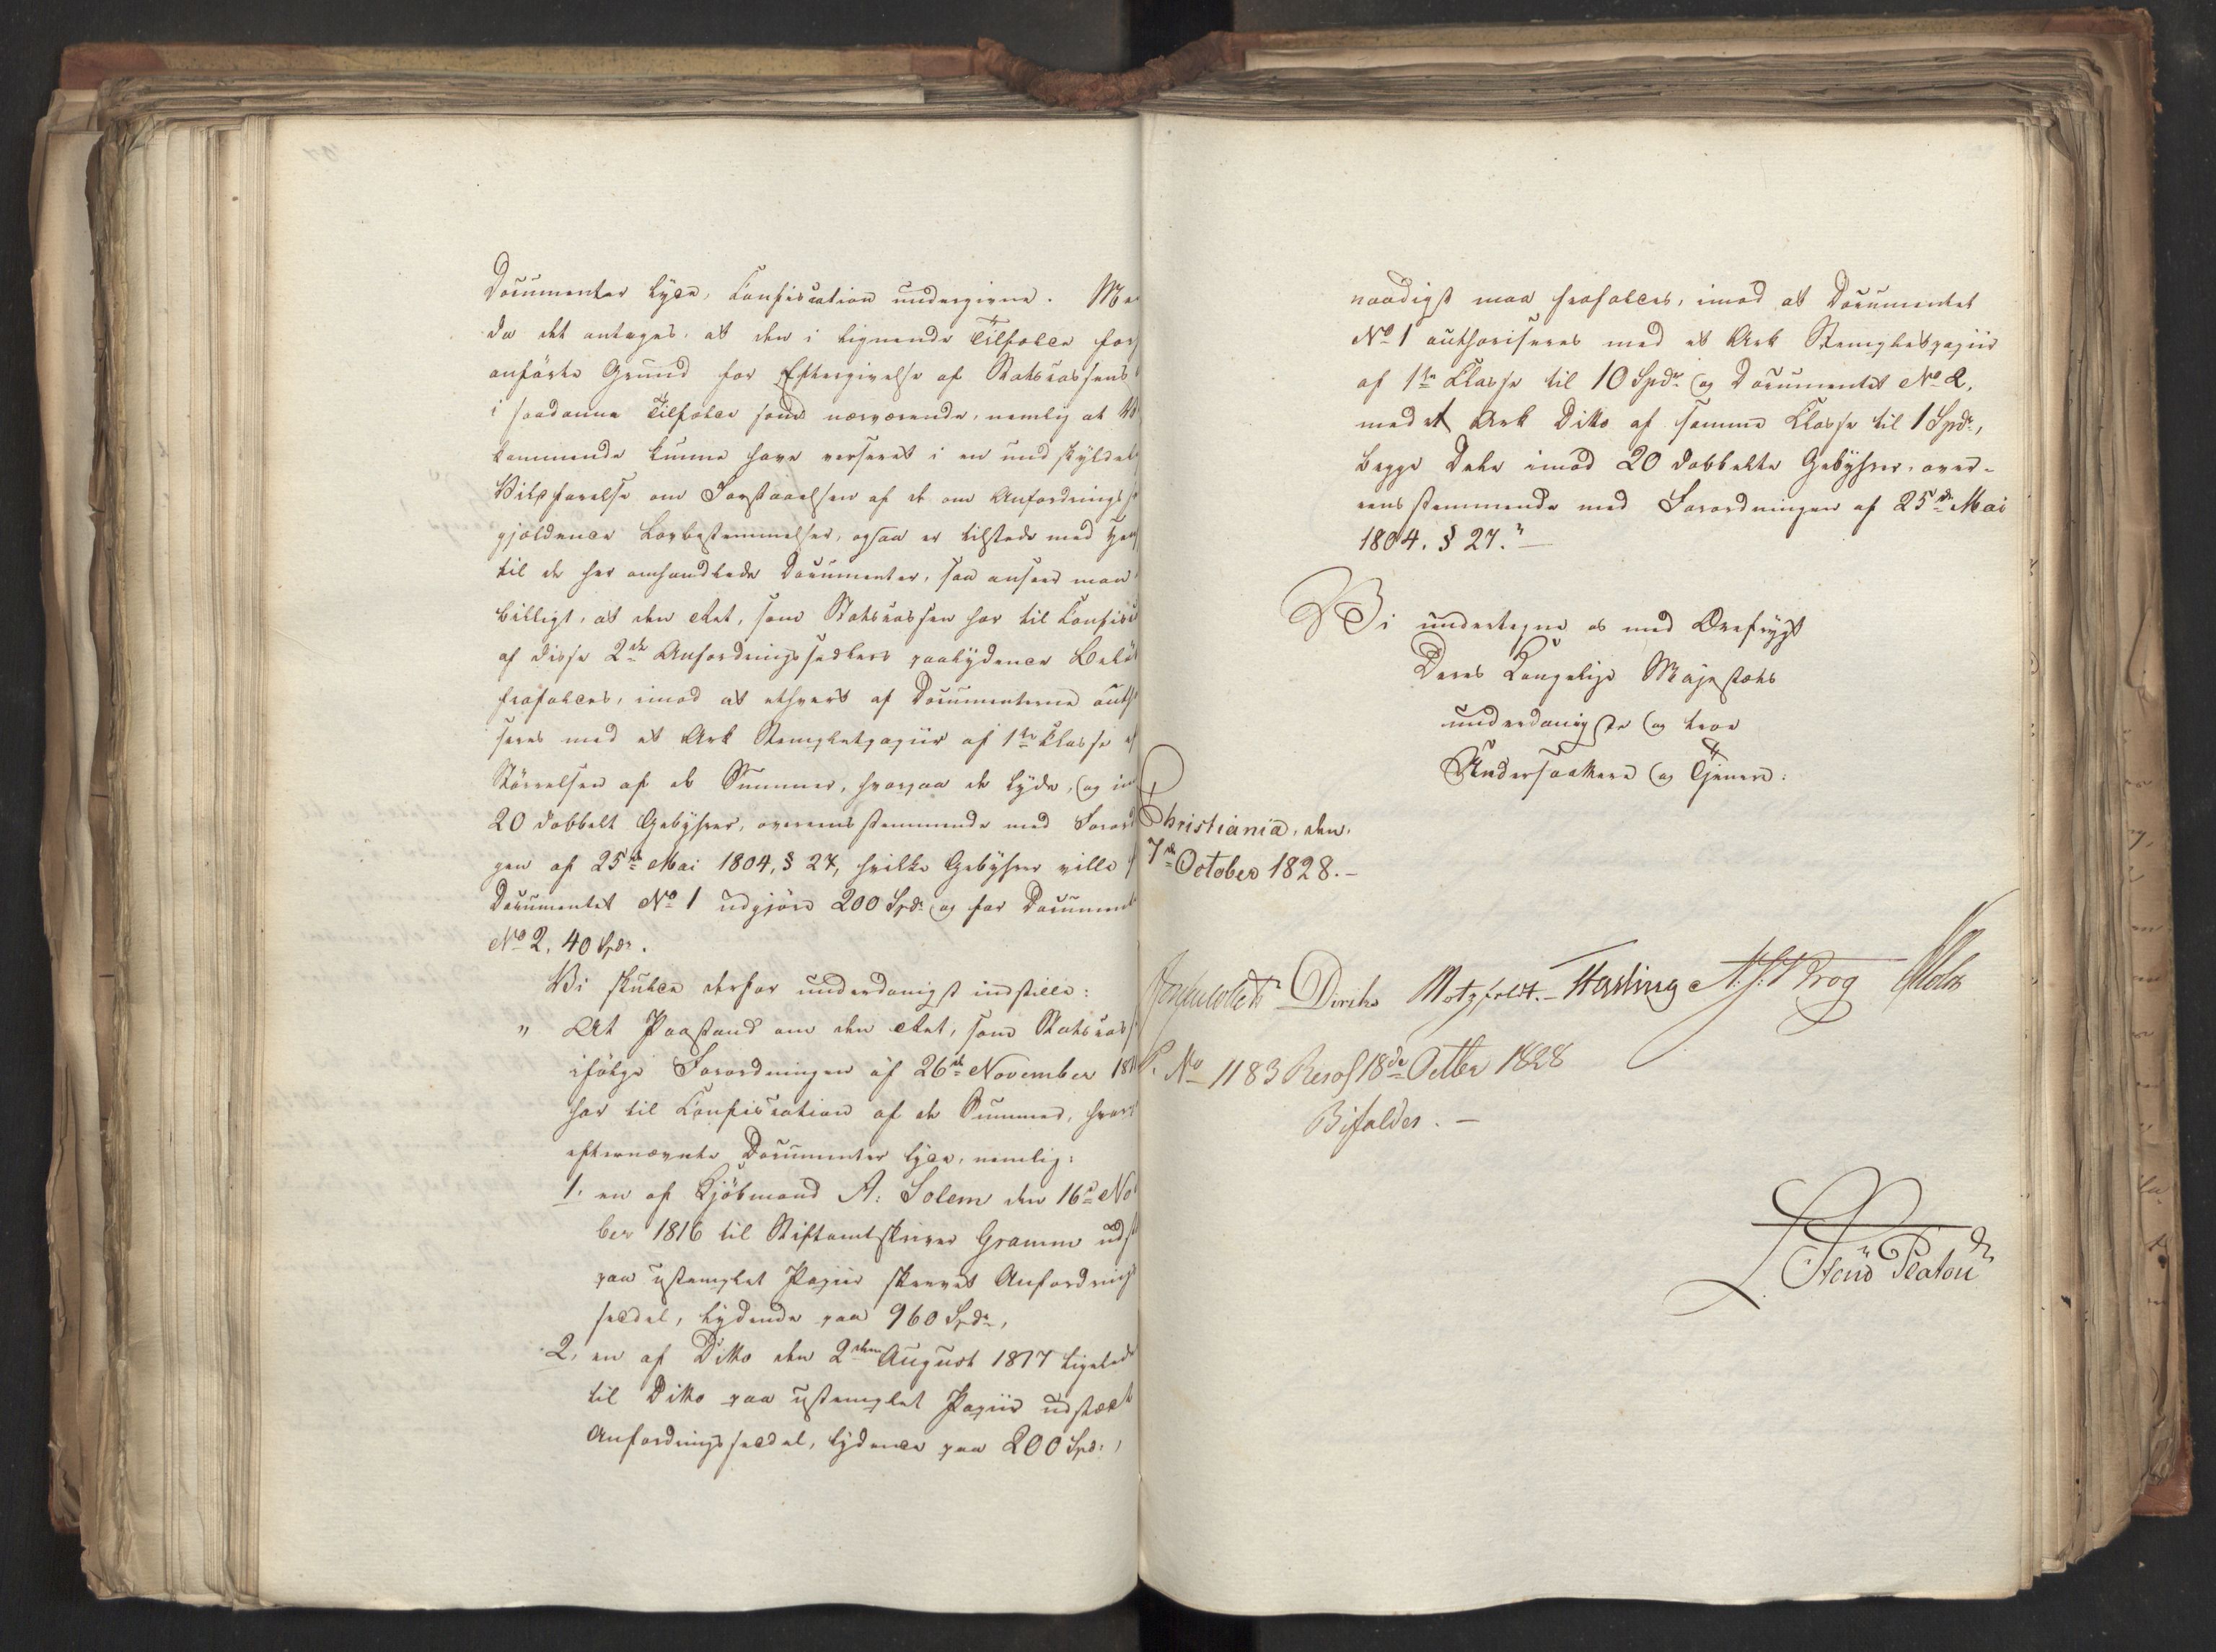 Documenter lyde, Confiscation undergivne. Me
da det antages, at den i lignende Tilfælde for
anførte Grund for Eftergivelse af Statscassens
i saadanne Tilfælde som nærværende, nemlig at V
kommende kunne have verseret i en undskyldel
Vildfarelse om Forstaaelsen af de om Anfordrings
gjældende Lovbestemmelser, ogsaa er tilstede med Hen
til de her omhandlede Documenter, saa anseer man
billigt, at den Ret, som Statscassen har til Confisc
af disse 2de Anfordringssedlers paalydende Belø
frafaldes, imod at ethvert af Documenterne auth
seres med et Ark Stemplet papiir af 1te Classe af
Størrelsen af de Summer, hvorpaa de lyde, og im
20 dobbelt Gebyhrer, overeensstemmende med Forord
gen af 25de Mai 1804, § 27, hvilke Gebyhrer ville f
Documentet No 1 udgjøre 200 Spdr og for Document
No 2, 40 Spdr.
Vi skulde derfor underdanigst indstille:
" At Paastand om den Ret, som Statscass
ifølge Forordningen af 26de November 18
har til Confiscation af de Summer, hvor
efternævnte Documenter lyde, nemlig:
1. en af Kjøbmand A: Solem den 16de No
ber 1816 til Stiftamtskriver Gramm uds
paa ustemplet Papiir skrevet Anfordrings
seddel, lydende paa 960 Spdr,
2, en af Ditto den 2den August 1817 ligeledes
til Ditto paa ustemplet Papiir udstædt
Anfordringsseddel, lydende paa 200 Spd:,
naadigst maa frafaldes, imod at Documentet
No 1 authoriseres med et Ark Stemplet papiir
af 1te Classe til 10 Spdr og Documentet No 2,
med et Ark Ditto af samme Classe til 1 Spdr,
begge Dele imod 20 dobbelte Gebyhrer, over-
eensstemmende med Forordningen af 25de Mai
1804. § 27."—
Vi undertegne os med Ærefrygt
Deres Kongelige Majestæts
underdanigste og troe
Undersaatter og Tjenere:
Christiania, den
7de October 1828.—
Diriks Motzfeldt.— Hesting
P. No 1183 Resol 18de Octbr 1828
Bifaldes.—